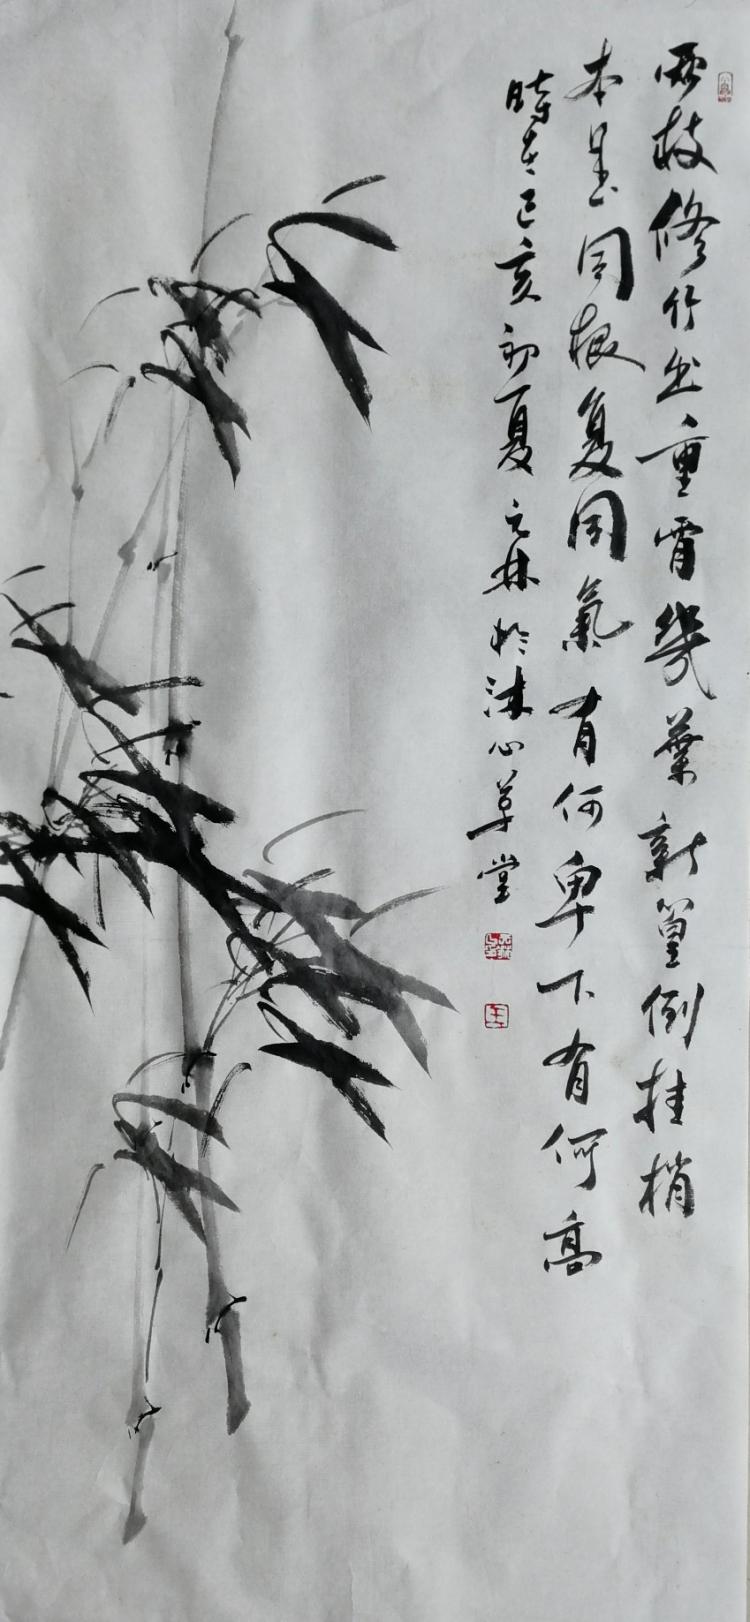 兩枝修竹出重霄幾葉新篁倒挂梢
本是同根復同氣有何卑下有何高
時在己亥初夏元林於沐心草堂